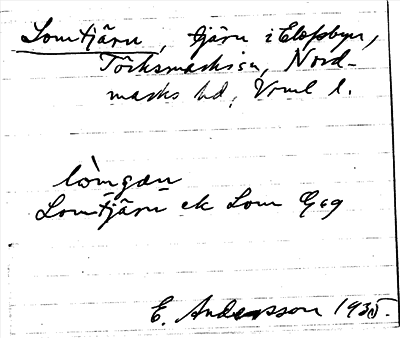 Lomtjärn, tjärn i Elofsbyn,
Töcksmarks sn, Nord-
marks hd, Vrml l.
lòmɡæn
Lomtjärn ek Lom Gåg
E. Andersson 1935.